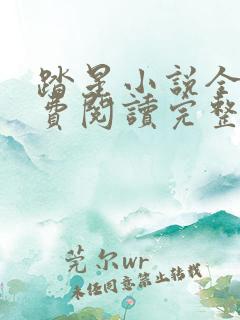 踏星小说全
費閱讀完整
莞尔wr
未经同意禁止转载